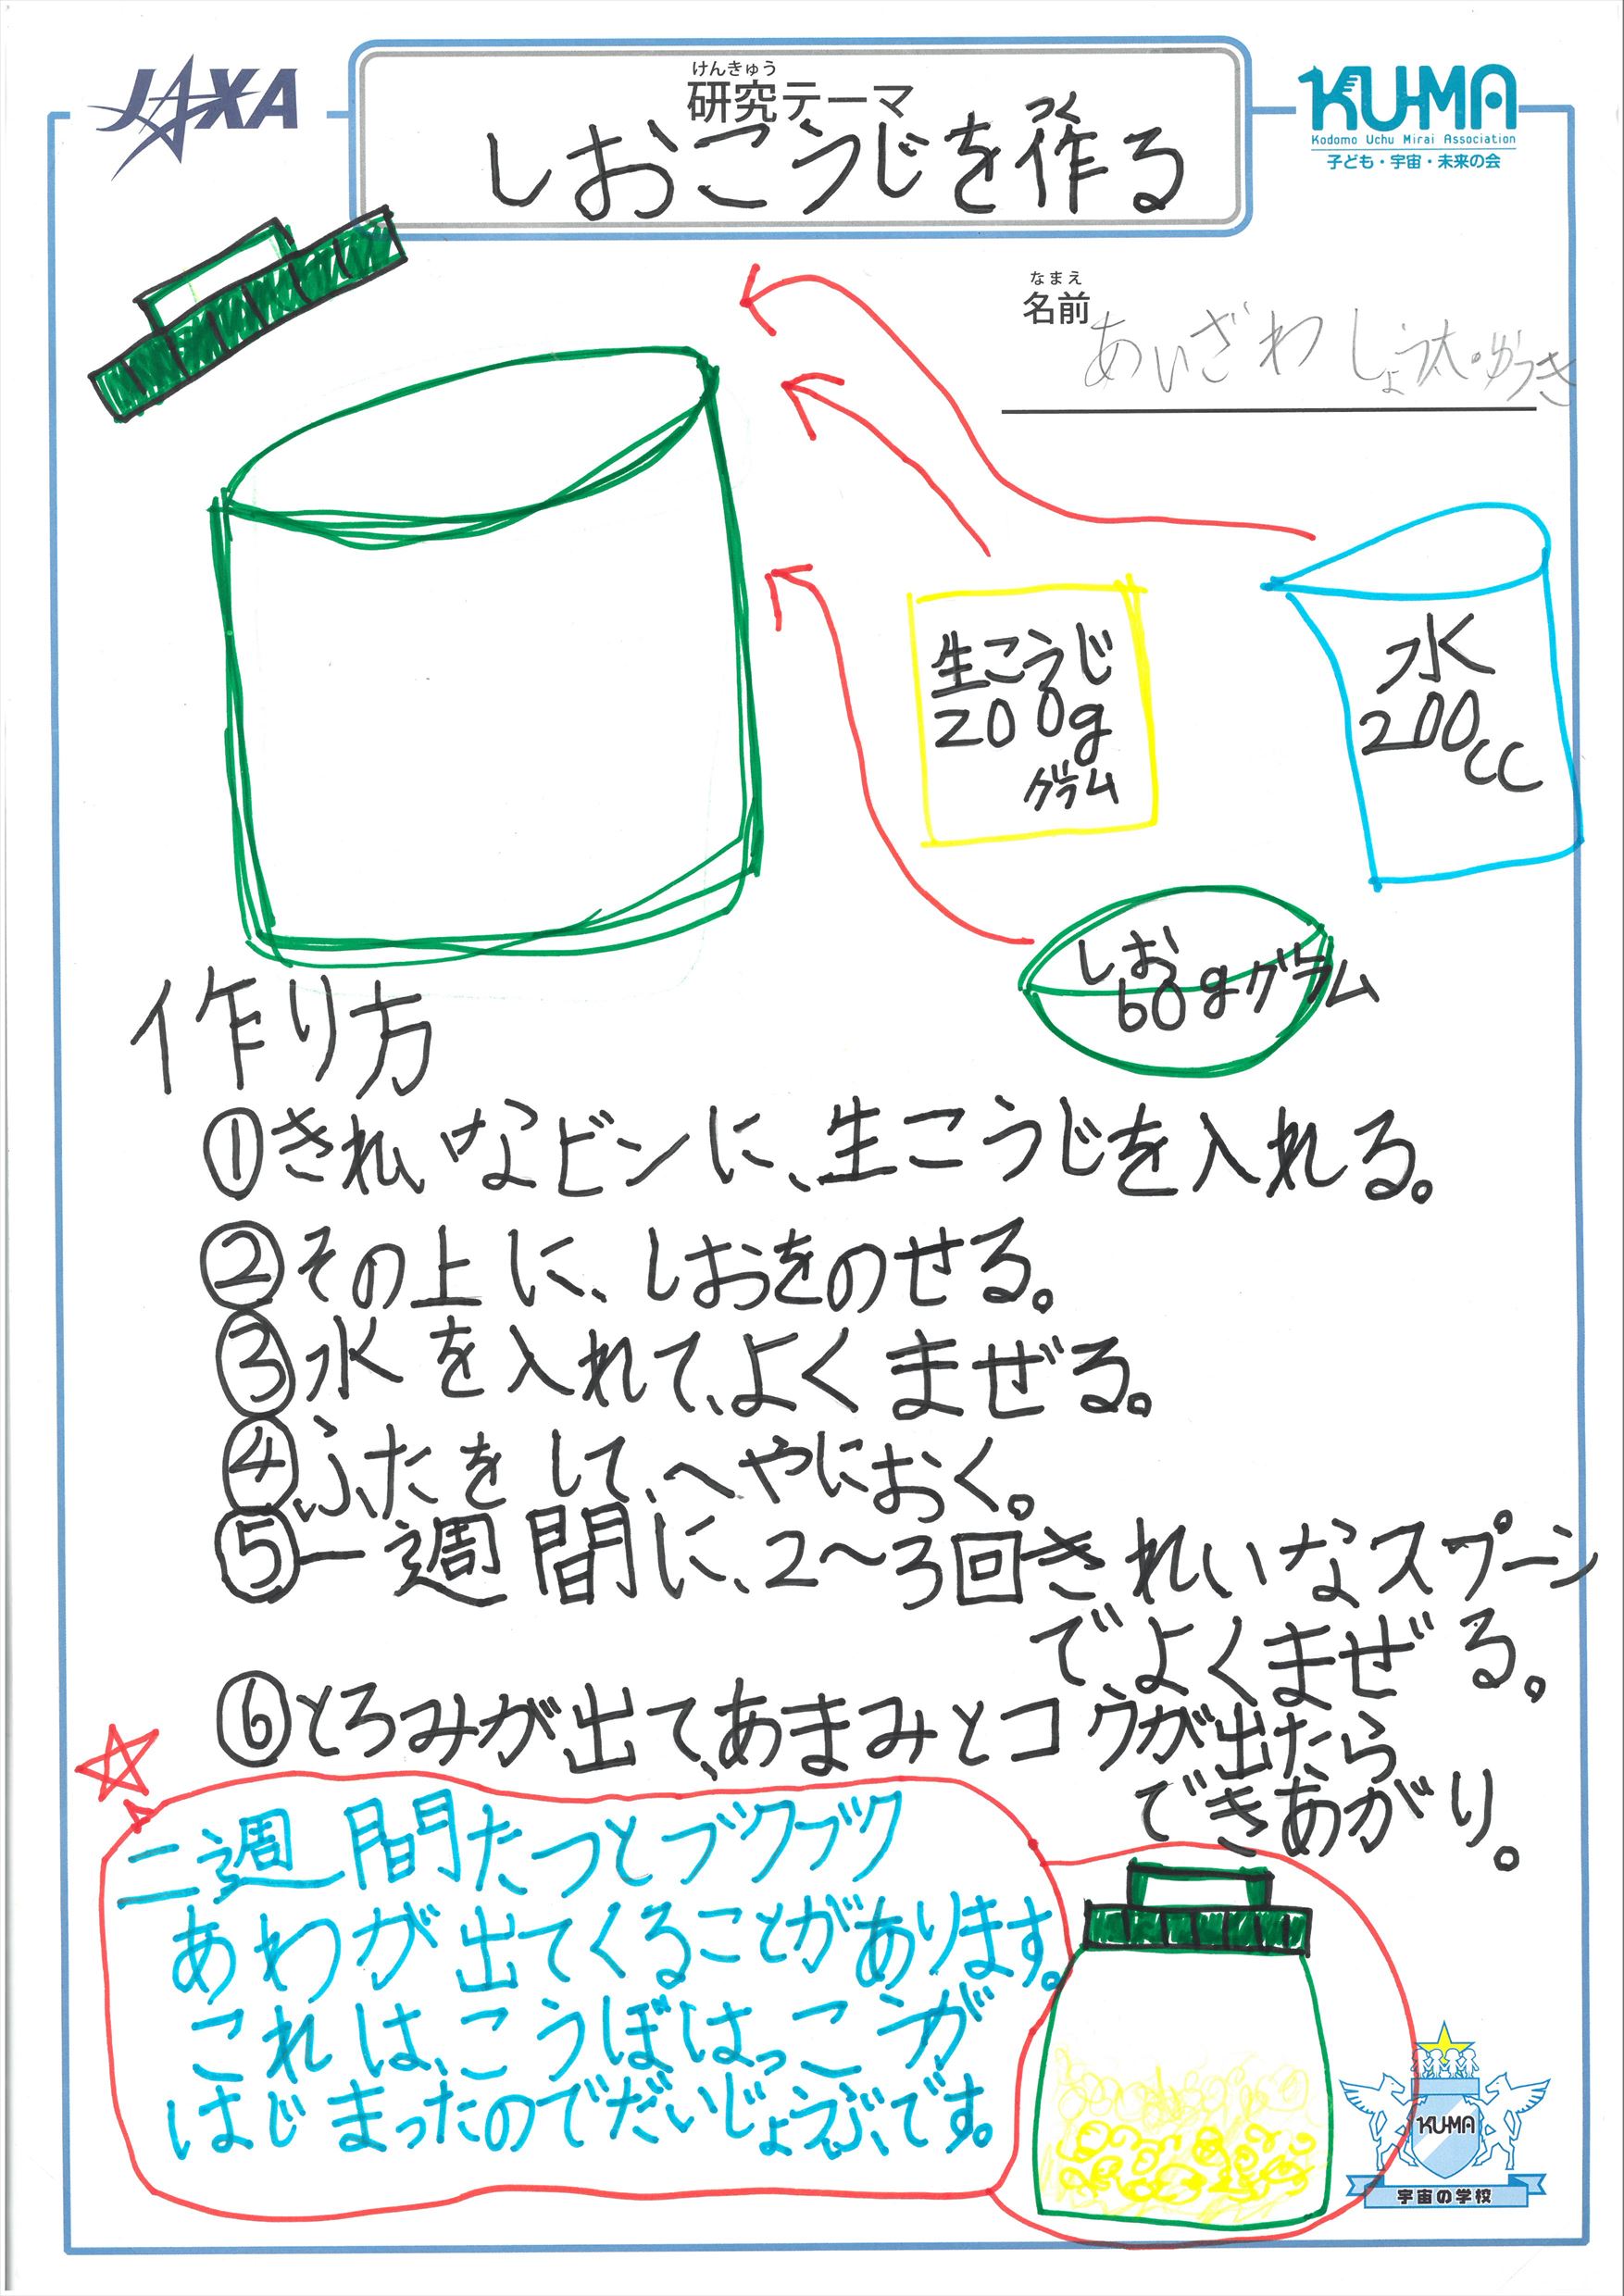 JAXA
けんきゅう
研究テーマ
しおこうじを作る
つく
KUMA
Kodomo Uchu Mirai Association
子ども・宇宙・未来の会
なまえ
名前
あいざわ しょう太・ゆうき
生こうじ
200g
グラム
水
200cc
しお
60gグラム
作り方
①きれいなビンに、生こうじを入れる。
②その上に、しおをのせる。
③水を入れて、よくまぜる。
④ふたをして、へやにおく。
⑤一週間に、2〜3回きれいなスプーン
でよくまぜる。
⑥とろみが出て、あまみとコウが出たら
できあがり。
二週間たつとブクブク
あわが出てくることがあります。
これは、こうぼはっこうが
はじまったのでだいじょうぶです。
KUMA
宇宙の学校